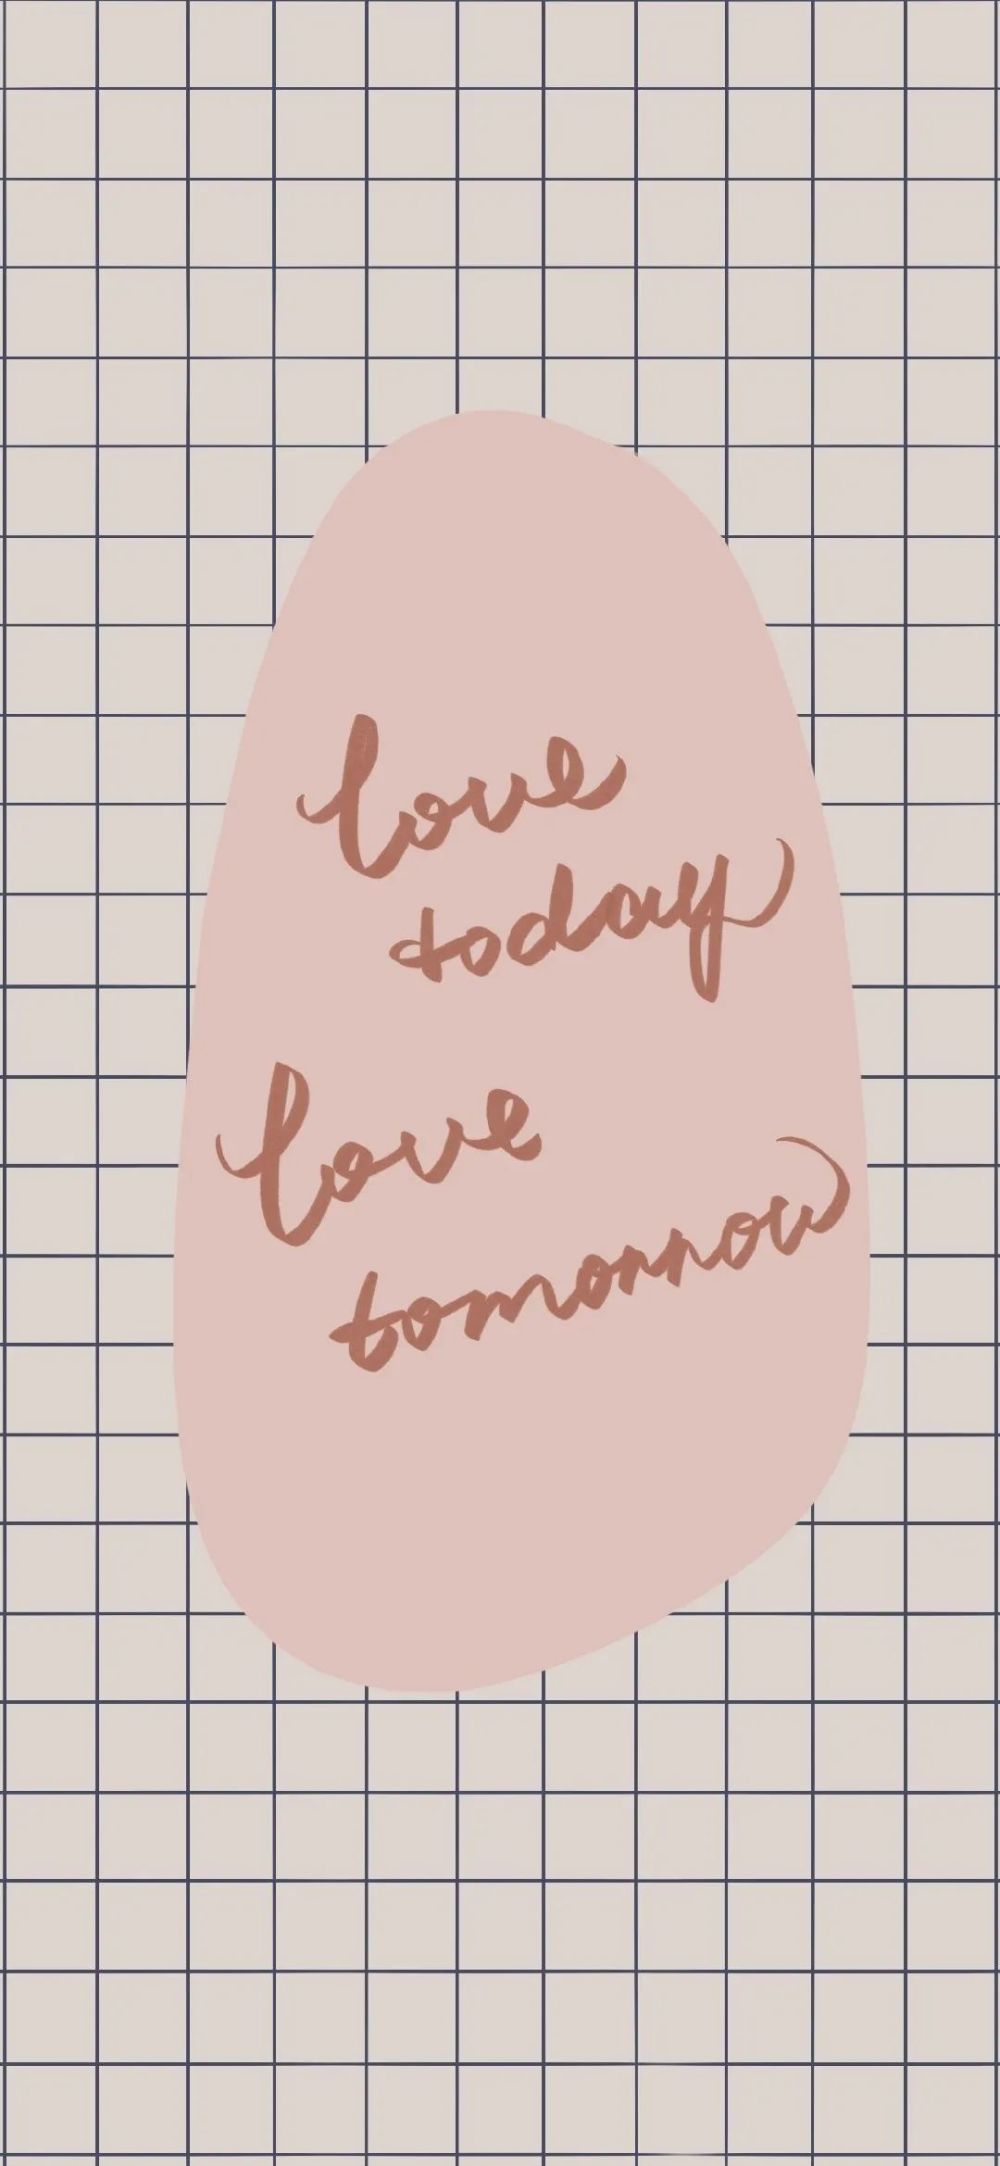 love
today
love
tomorrow